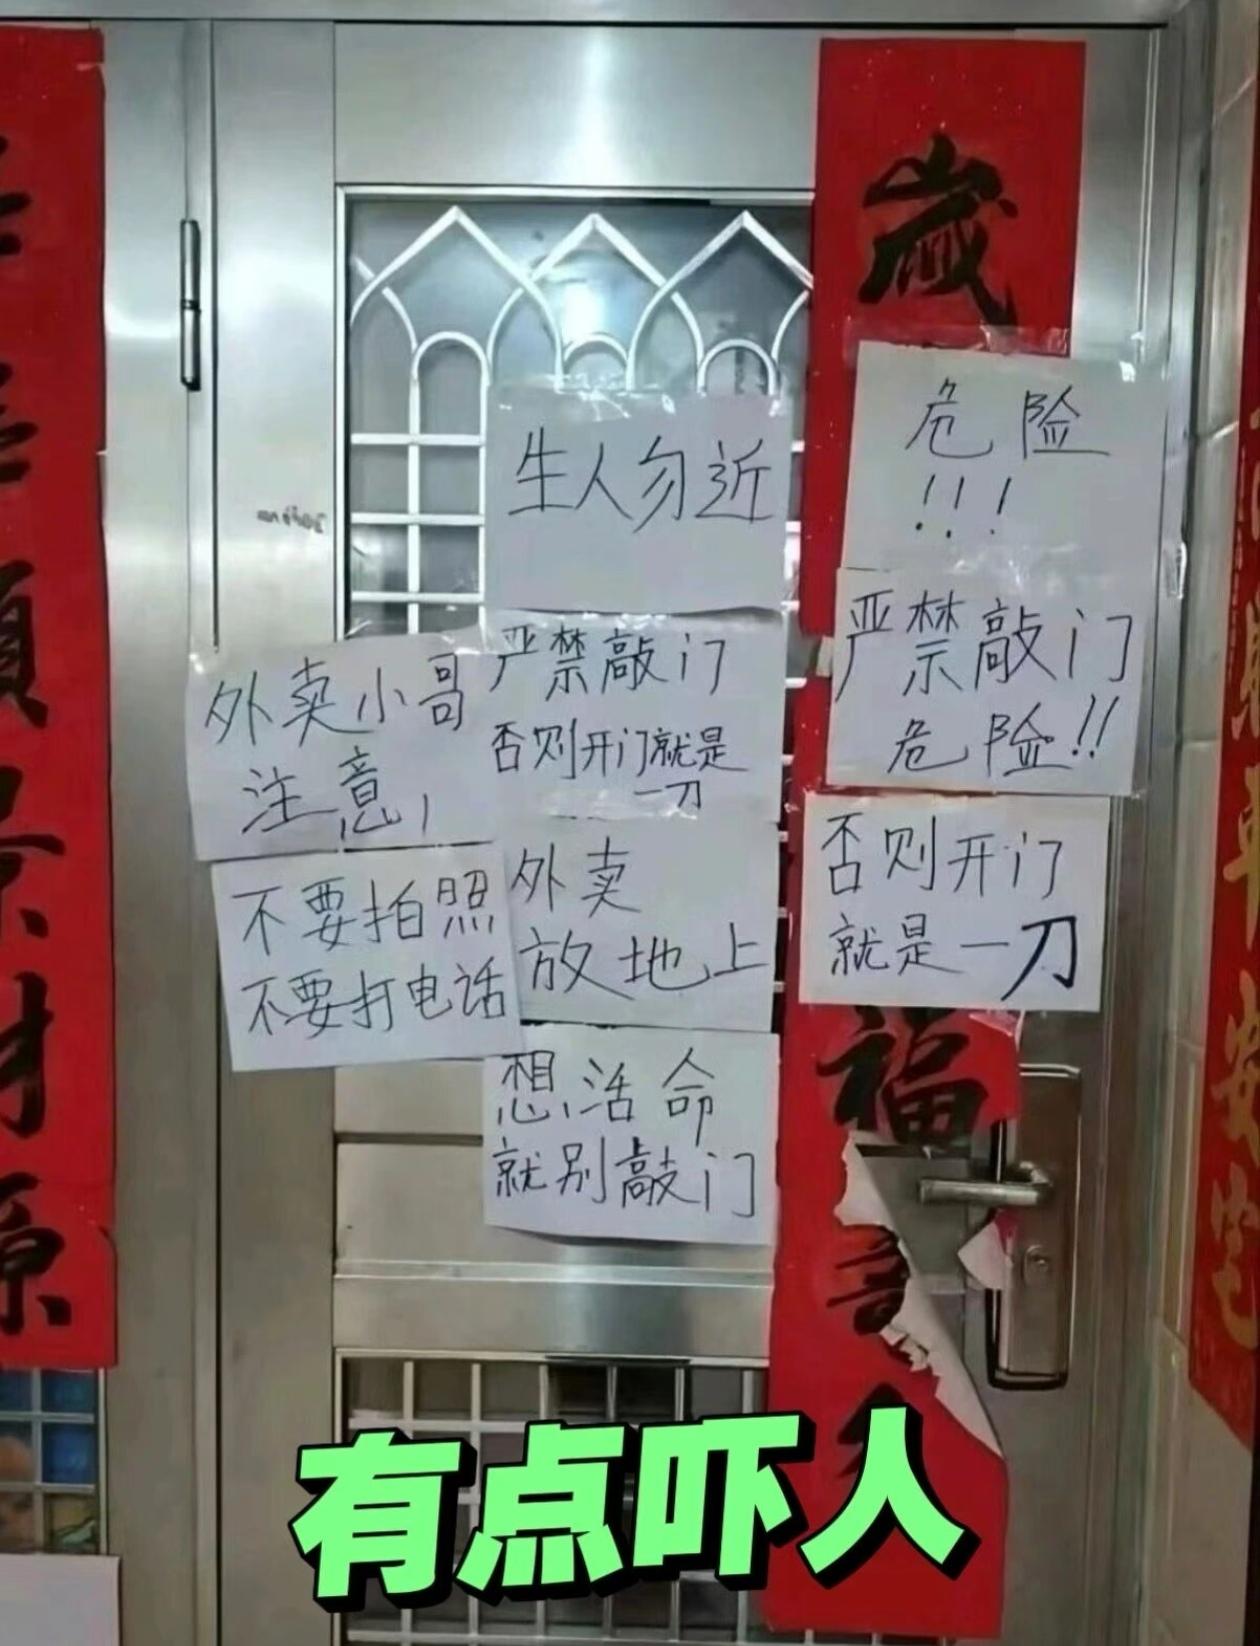 歲
福
生人勿近
危险
!!!
严禁敲门
危险!!
否则开门
就是一刀
外卖小哥
注意!
不要拍照
不要打电话
严禁敲门
否则开门就是
一刀
外卖
放地上
想活命
就别敲门
順
景
財
源
有点吓人